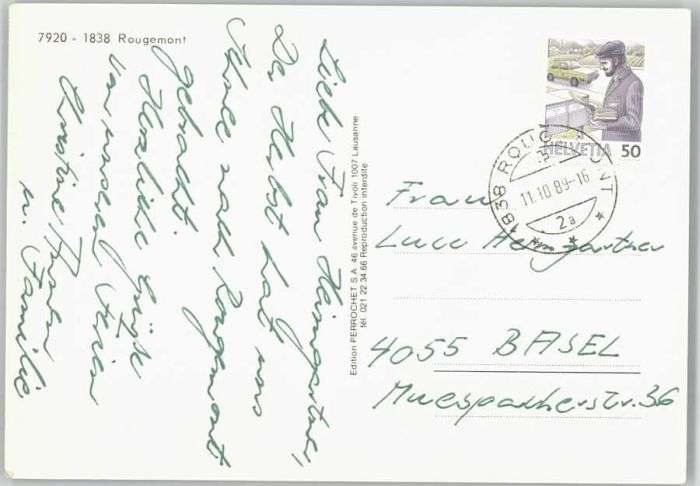 7920 - 1838 Rougemont
Liebe Frau Heimgartner,
Der Herbst hat uns
Schnee nach Rougemont
gebracht.
Herzliche Grüsse
von unseren Ferien
Christine
u. Familie
Edition PERROCHET S.A. 46 avenue de Tivoli 1007 Lausanne
tél. 021 22 34 66 Reproduction interdite
HELVETIA 50
1838 ROUGEMONT
11.10.89-16
2a
Frau
Luce Heimgartner
4055 BASEL
Muespacherstr. 36